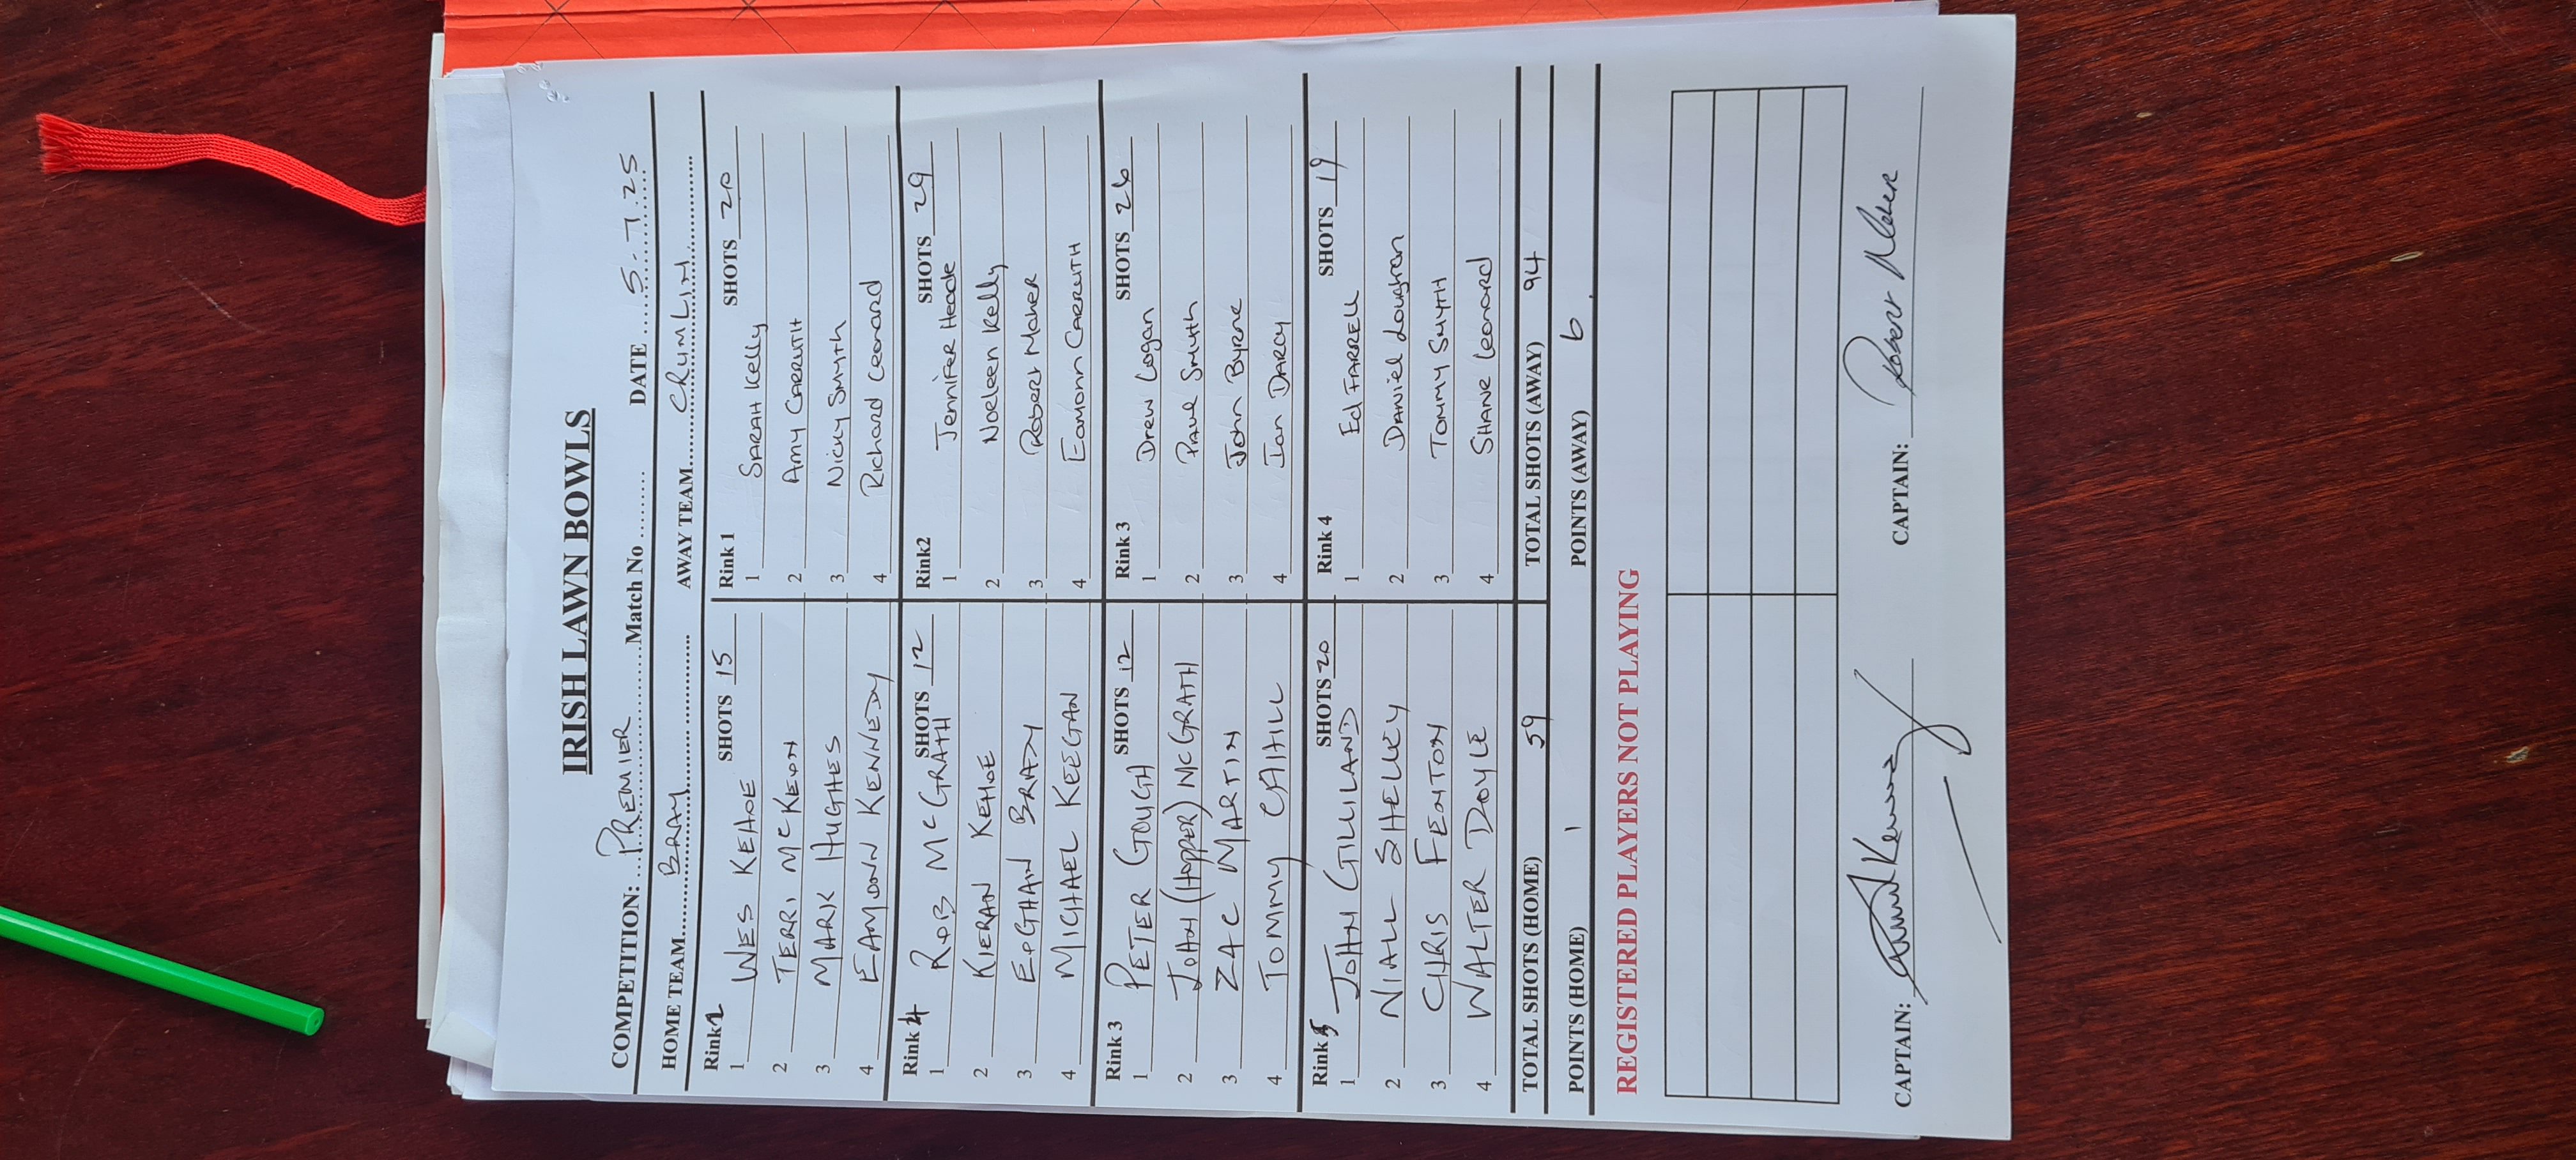 IRISH LAWN BOWLS
COMPETITION: PREMIER Match No DATE 5.7.25
HOME TEAM BRAY AWAY TEAM CRUMLIN
Rink 2 SHOTS 15 Rink 1 SHOTS 20
1 WES KEHOE 1 SARAH Kelly
2 TERRI McKEON 2 Amy CARRUTH
3 MARK HUGHES 3 Nicky Smyth
4 EAMONN KENNEDY 4 Richard Leonard
Rink 4 SHOTS 12 Rink2 SHOTS 29
1 ROB McGRATH 1 Jennifer Heade
2 KIERAN KEHOE 2 Noeleen Kelly
3 EOGHAIN BRADY 3 Robert Maher
4 MICHAEL KEEGAN 4 Eamonn CARRUTH
Rink 3 SHOTS 12 Rink 3 SHOTS 26
1 PETER GOUGH 1 Drew Logan
2 JOHN (HOPPER) McGRATH 2 Paul Smith
3 ZAC MARTIN 3 John Byrne
4 TOMMY CAHILL 4 Ian DARCY
Rink 5 SHOTS 20 Rink 4 SHOTS 19
1 JOHN GILLILAND 1 Ed FARRELL
2 NIALL SHELLEY 2 Daniel Loughran
3 CHRIS FENTON 3 Tommy Smyth
4 WALTER DOYLE 4 Shane Leonard
TOTAL SHOTS (HOME) 59 TOTAL SHOTS (AWAY) 94
POINTS (HOME) 1 POINTS (AWAY) 6
REGISTERED PLAYERS NOT PLAYING
CAPTAIN: CAPTAIN: Robert Maher